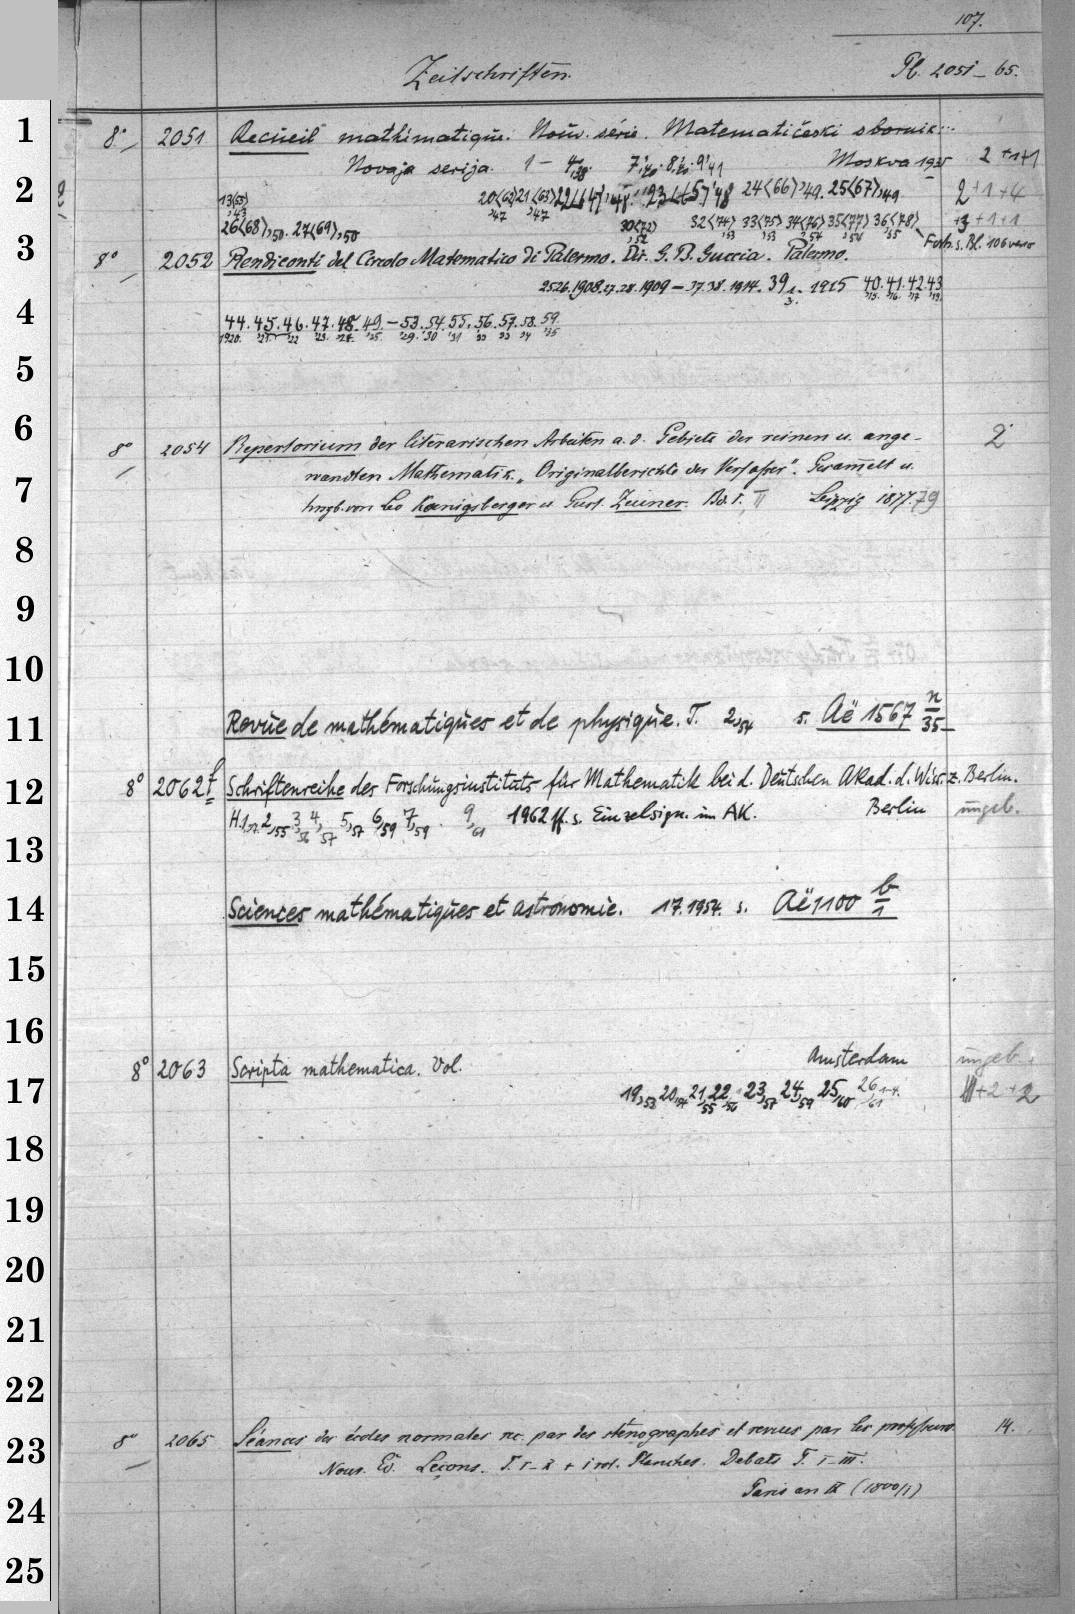 107.
Zeitschriften.
Pl. 2051–65.
8° 2051 Recueil mathématique. Nouv. série. Matematičeski sbornik...
Novaja serija. 1 – 4,38. 7,'40. 8,'40. 9'41 Moskva 1935 2 +1+1
13(55),'43 20(62),'47 21(63),'47 22(64),'48. 23(65)'48 24(66),'49. 25(67),49 2+1+4
26(68),50. 27(69),50 30(72),52 32(74),53 33(75),53 34(76),54 35(77),54 36(78),55 +3+1+1
Forts. s. Bl. 106 verso
8° 2052 Rendiconti del Circolo Matematico di Palermo. Dir. G. B. Guccia. Palermo.
25.26.1908.27.28.1909–37.38.1914. 39 1. 3. 1915 40.'15. 41.'16. 42.'17 43'19.
44.1920. 45.'21. 46.'22 47.'23. 48.'24. 49.'25. – 53.'29. 54.'30 55.'31 56.'32 57.'33 58.'34 59.'35
8° 2054 Repertorium der literarischen Arbeiten a. d. Gebiete der reinen u. ange- 2
wandten Mathematik. „Originalberichte der Verfasser". Gesammelt u.
hrsgb. von Leo Koenigsberger u. Gust. Zeuner. Bd. I. II Leipzig 1877.79
Revue de mathématiques et de physique. T. 2,54 s. Aë 1567 n/35
8° 2062f Schriftenreihe des Forschungsinstituts für Mathematik bei d. Deutschen Akad. d. Wiss. z. Berlin.
H.1,57. 2,55 3,56 4,57 5,57 6,59 7,59. 9,61 1962 ff. s. Einzelsign. im AK. Berlin ungeb.
Sciences mathématiques et astronomie. 17.1954. s. Aë 1100 b/1
8° 2063 Scripta mathematica. Vol. Amsterdam ungeb.
19,53 20,54 21,55 22,56 23,57 24,59 25,60 26,61 1-4. III+2+2
8° 2065 Séances des écoles normales rec. par des sténographes et revues par les professeurs. 14.
Nouv. Ed. Leçons. T. I–X + 1 vol. Planches. Debats T. I–III.
Paris an IX (1800/1)